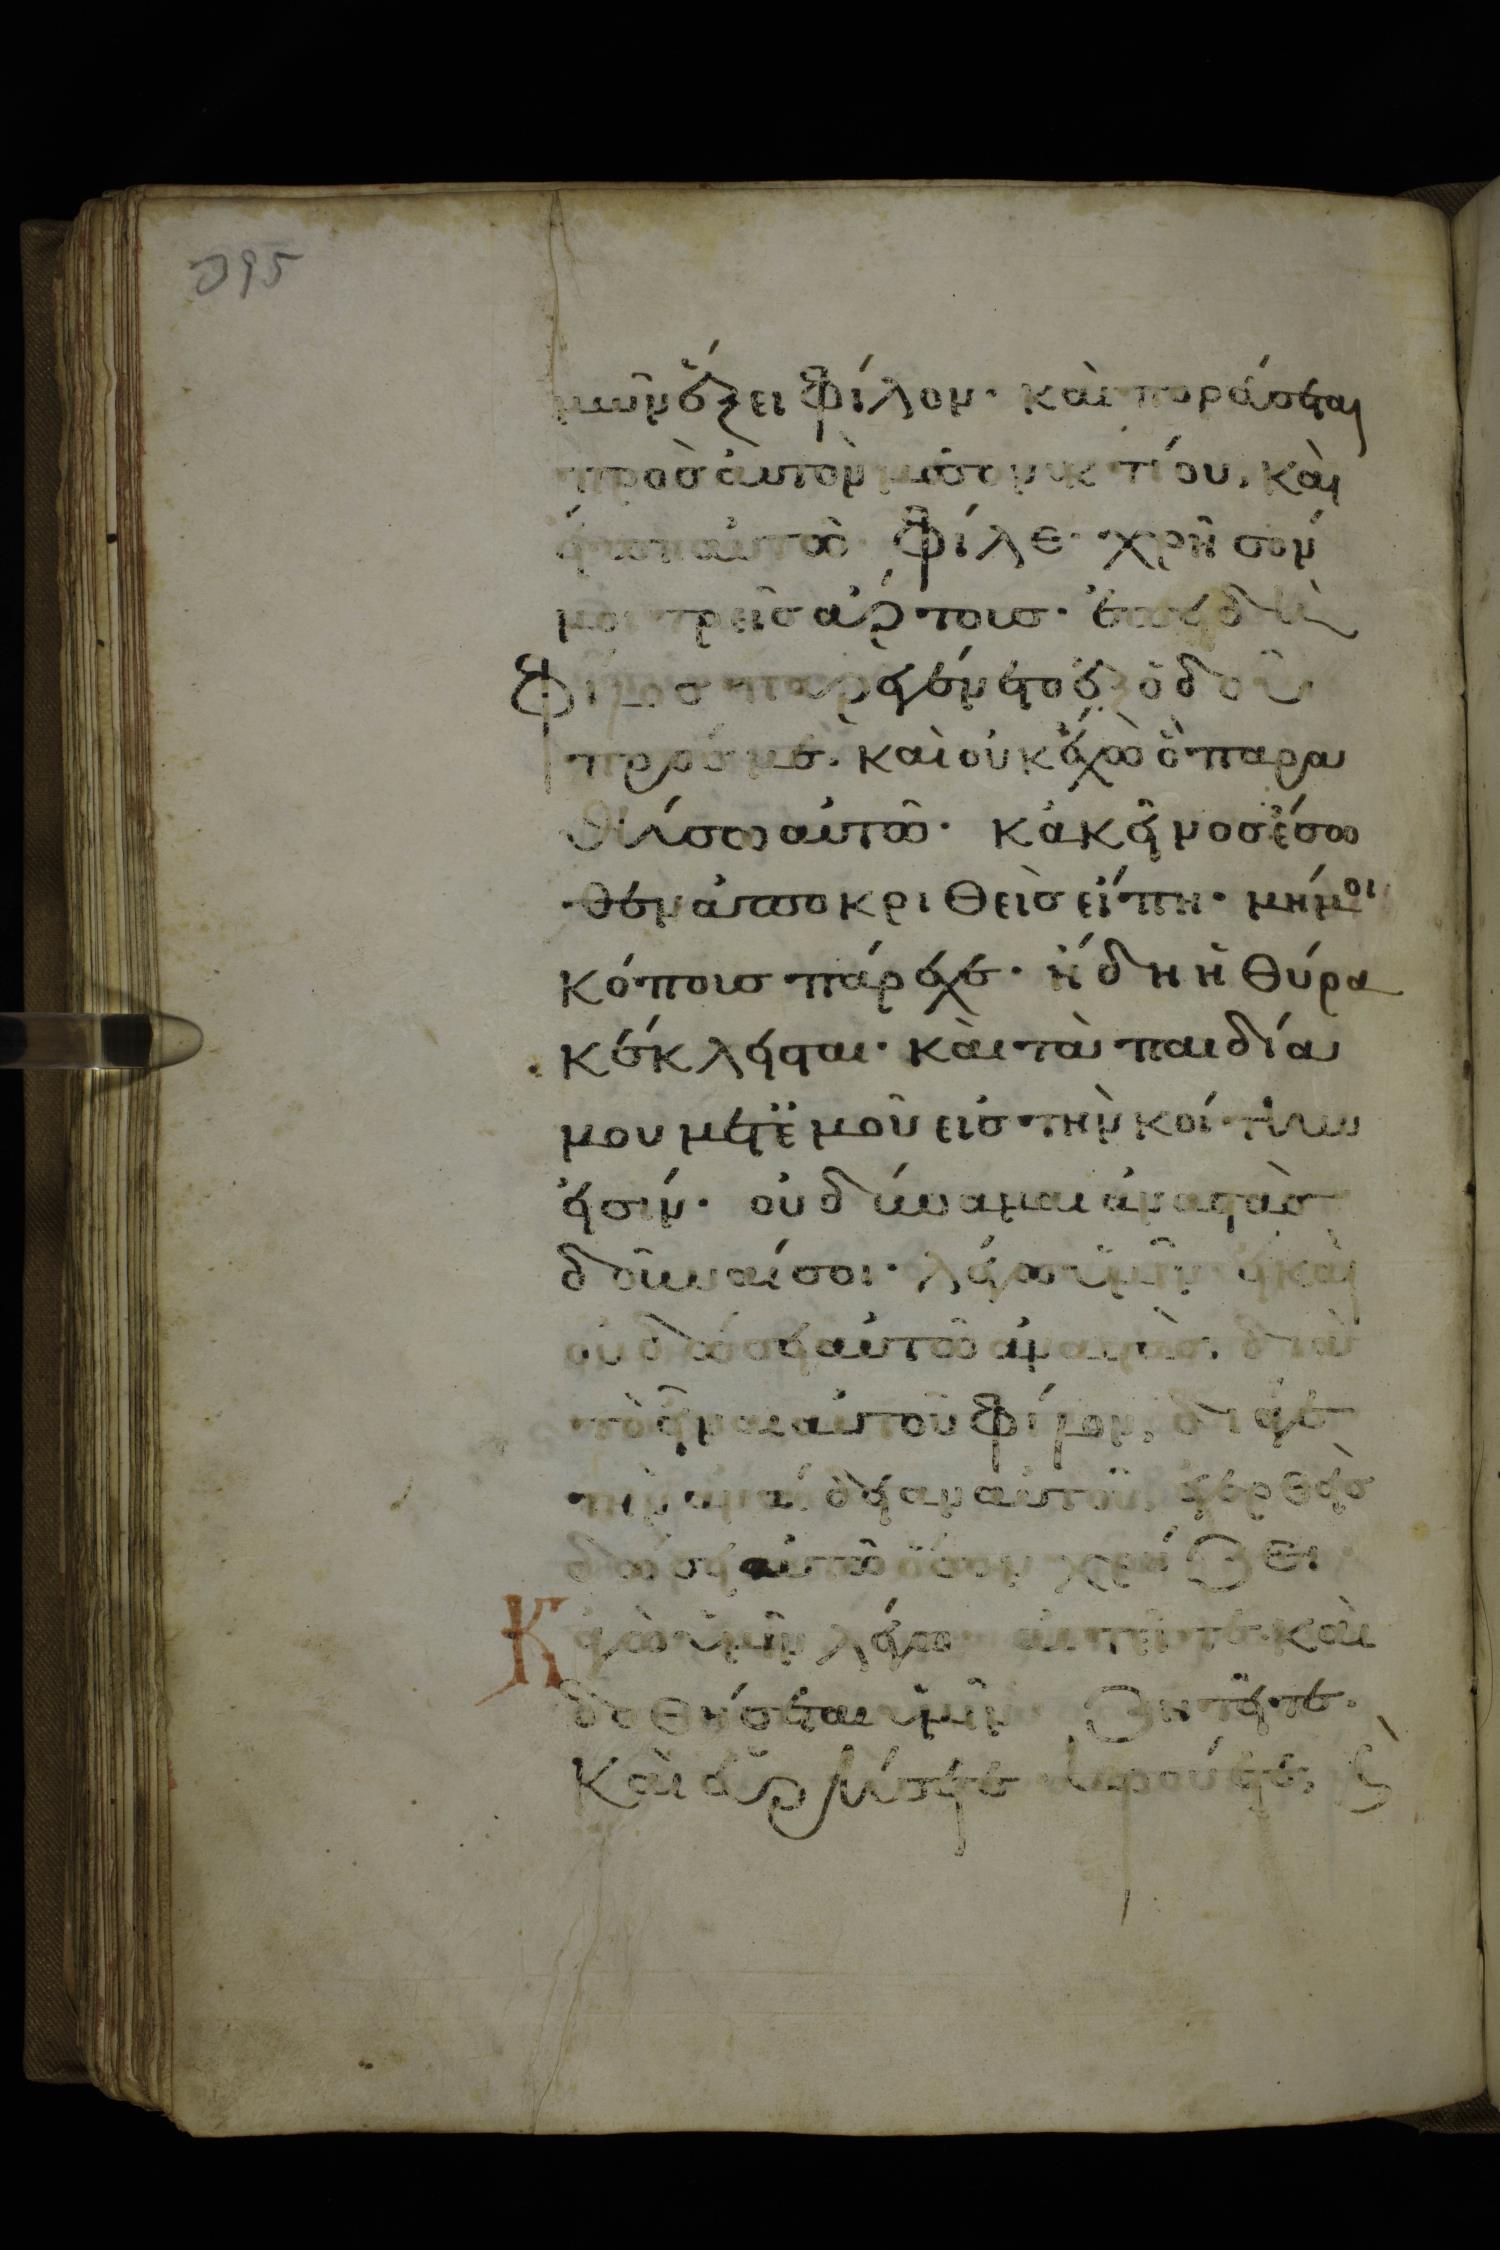 395
μῶν ἕξει φίλον· καὶ πορεύσεται
πρὸσ αὐτὸν μεσονυκτίου, καὶ
εἴπη αὐτῶ· φίλε· χρῆσόν
μοι τρεῖσ ἄρτουσ· ἐπειδὴ
φίλοσ παρεγένετο ἐξ ὁδοῦ
πρόσ με. καὶ οὐκ ἔχω ὃ παρα
θήσω αὐτῶ· κἀκεῖνοσ ἔσω
θεν ἀποκριθεὶσ εἴπη· μή μοι
κόπουσ πάρεχε· ἤδη ἡ θύρα
κέκλεισται· καὶ τὰ παιδία
μου μετ ἐμοῦ εἰσ τὴν κοίτην
εἰσίν· οὐ δύναμαι ἀναστὰσ
δοῦναί σοι· λέγω ὑμῖν εἰ καὶ
οὐ δώσει αὐτῶ ἀναστὰσ, διὰ
τὸ εἶναι αὐτοῦ φίλον, διά γε
τὴν ἀναίδειαν αὐτοῦ, ἐγερθεὶσ
δώσει αὐτῶ ὅσον χρήζει·
Κἀγὼ ὑμῖν λέγω· αἰτεῖτε καὶ
δοθήσεται ὑμῖν· ζητεῖτε·
καὶ εὑρήσετε· κρούετε, ϗ